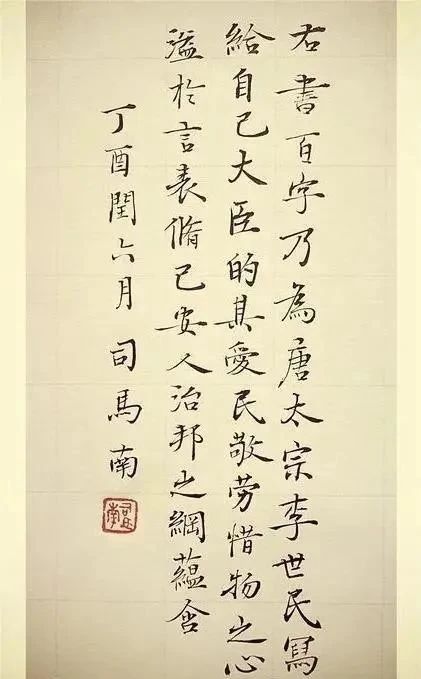 右書百字乃為唐太宗李世民寫
給自己大臣的其愛民敬勞惜物之心
溢於言表脩己安人治邦之綱蘊含
丁酉閏六月 司馬南